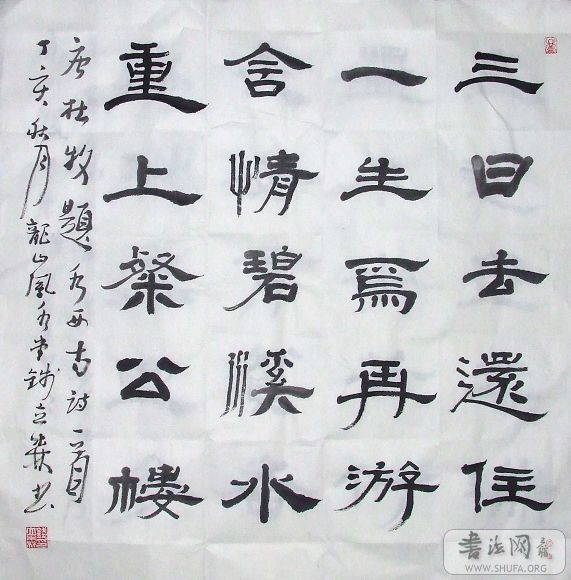 三日去還住
一生焉再游
含情碧溪水
重上粲公樓
唐杜牧題水西寺詩一首
丁亥秋月龍山風水堂錢立書
書法网
WWW.SHUFA.ORG